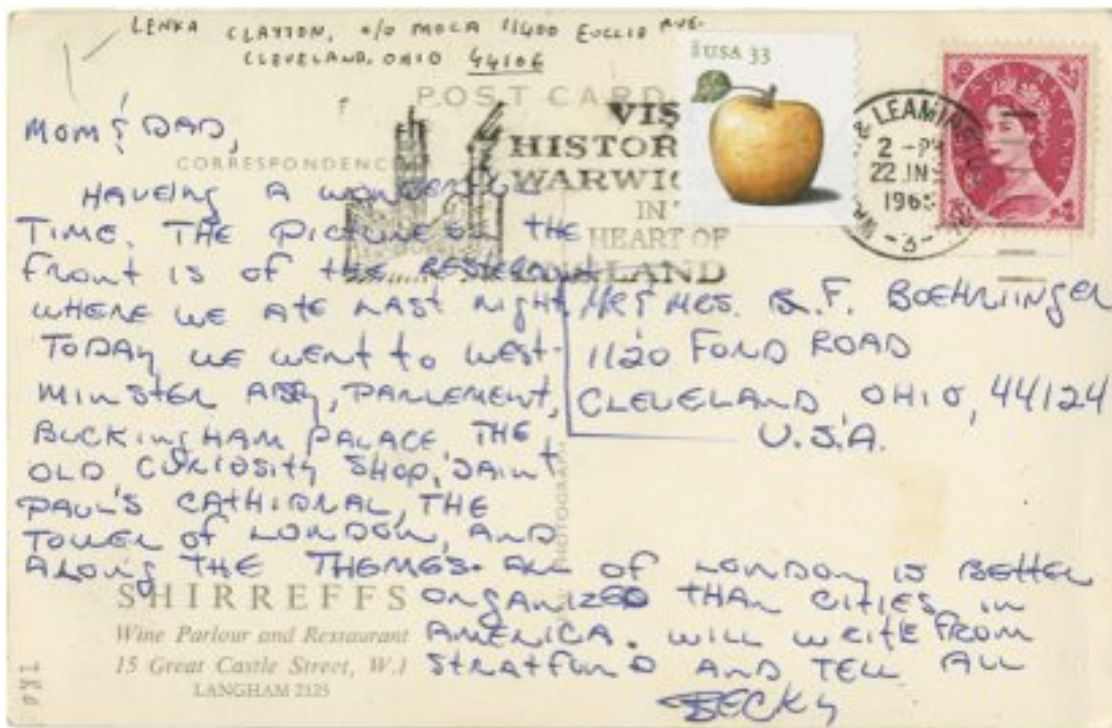 LENKA CLAYTON, c/o MOCA 11400 EUCLID AVE.
CLEVELAND, OHIO 44106
USA 33
POST CARD
CORRESPONDENCE
VIS
HISTOR
WARWIC
IN
HEART OF
ENGLAND
& LEAMING
2 - PM
22 JNE
196
- 3 -
MOM & DAD,
HAVEING A WONDERFUL
TIME. THE PICTURE ON THE
FRONT IS OF THE
WHERE WE ATE LAST NIGHT
TODAY WE WENT TO WEST-
MINSTER ABBY, PARLEMENT,
BUCKINGHAM PALACE, THE
OLD CURIOSITY SHOP, SAINT
PAUL'S CATHIDRAL, THE
TOWER OF LONDON, AND
ALONG THE THEMES. ALL OF LONDON IS BETTER
ORGANIZED THAN CITIES IN
AMERICA. WILL WRITE FROM
STRATFORD AND TELL ALL
BECKY
Mr & MRS. B.F. BOEHRINGER
1120 FORD ROAD
CLEVELAND, OHIO, 44124
U.S.A.
SHIRREFFS
Wine Parlour and Restaurant
15 Great Castle Street, W.1
LANGHAM 2125